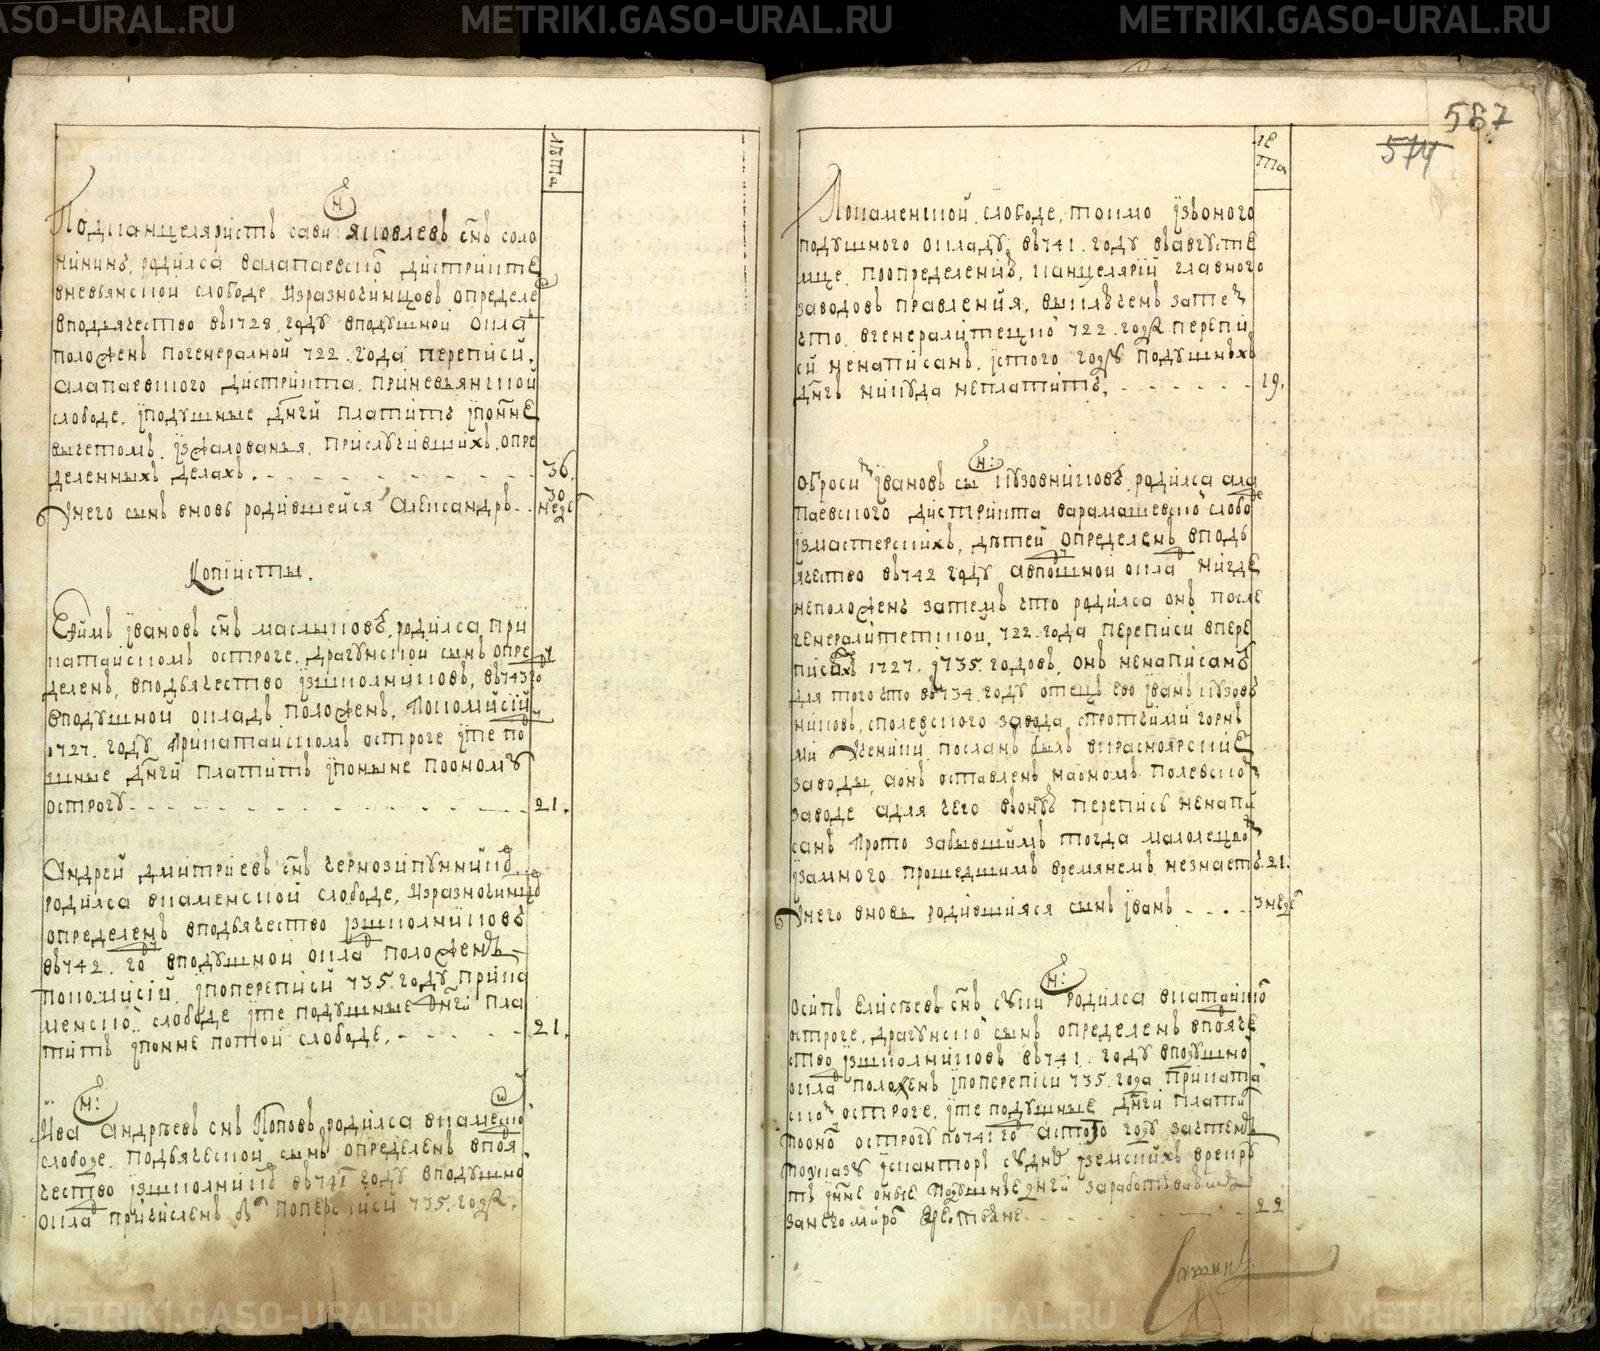 METRIKI.GASO-URAL.RU
587
574
лѣта
н
Подканцеляристъ сави Яковлевъ снъ соло
нининъ, родился валапаевско дистрикте
вневьянской слободе, изразночинцовъ определе
вподьячество въ1728 году вподушной окла
положенъ погенералной 722 года переписи,
алапаевского дистрикта, приневьянской
слободе, iподушные днги платитъ iпонне
вычетомъ iзжалованья, прислучившихъ опре
деленныхъ делахъ. 36.
Унего сынъ вновь родившейся Александръ 30 недѣ
Копiисты.
Ефимъ iвановъ снъ маслыковъ, родился при
катайскомъ остроге, драгунской сынъ опре
деленъ, вподьячество iзшколниковъ, въ743 го
вподушной окладъ положенъ, покомисiи
1727. году прикатайскомъ остроге iте по
шные днги платитъ iпоныне пооному
острогу 21.
Андрей дмитриевъ снъ чернозипунник
родился вкаменской слободе, изразночинцо
определенъ вподьячество iзшколниковъ
въ742. го вподушной окла положенъ
покомисiи, iпопереписи 735. году прика
менско слободе iте подушные днги пла
титъ iпонне потой слободе. 21.
н:
Ива андрѣевъ снъ Поповъ родился вкаменско
слободе подьяческой сынъ определенъ впоя
чество iзшколник въ741 году вподушно
окла причисленъ попереписи 735. году.
лета
Покаменской слободе, токмо iзвоного
подушного окладу, въ741. году вавгусте
мце поопределению, канцелярiи главного
заводовъ правления, выключенъ зате
что вгенералитецко 722. году перепи
си ненаписанъ, iстого году подушныхъ
днгъ никуда неплатитъ. 19.
н:
Оброси iвановъ сы кузовниковъ, родился ала
паевского дистрикта варамашевско слобо
iзмастерскихъ, дѣтей определенъ вподь
ячество въ742 году авподушной окла нигде
неположенъ затемъ что родился онъ после
генералитетской, 722. года переписи впере
писяхъ 1727. i735. годовъ, онъ ненаписанъ
для того что въ734. году отецъ ево iванъ кузов
никовъ, сполевского завода, спротчими горны
ми посланъ былъ вкрасноярские
заводы, аонъ оставленъ наономъ полевско
заводе адля чего воную перепись ненапи
санъ прото забывшимъ тогда малолецво
iзамного прошедшимъ времянемъ, незнаетъ. 21.
Унего вновь родившийся сынъ iванъ 3 недѣ
н:
Осипъ Елисѣевъ снъ родился вкатайско
остроге, драгунско сынъ определенъ впояче
ство iзшколниковъ въ741. году вподушно
окла положенъ iпопереписи 735. года прината
ско остроге, iте подушные днги плати
пооно острогу по741 го астого году зачтенъ
поуказу iсканторъ судны iземскихъ
тъ iнне оные подушные днги
занего миро крестьяне 22